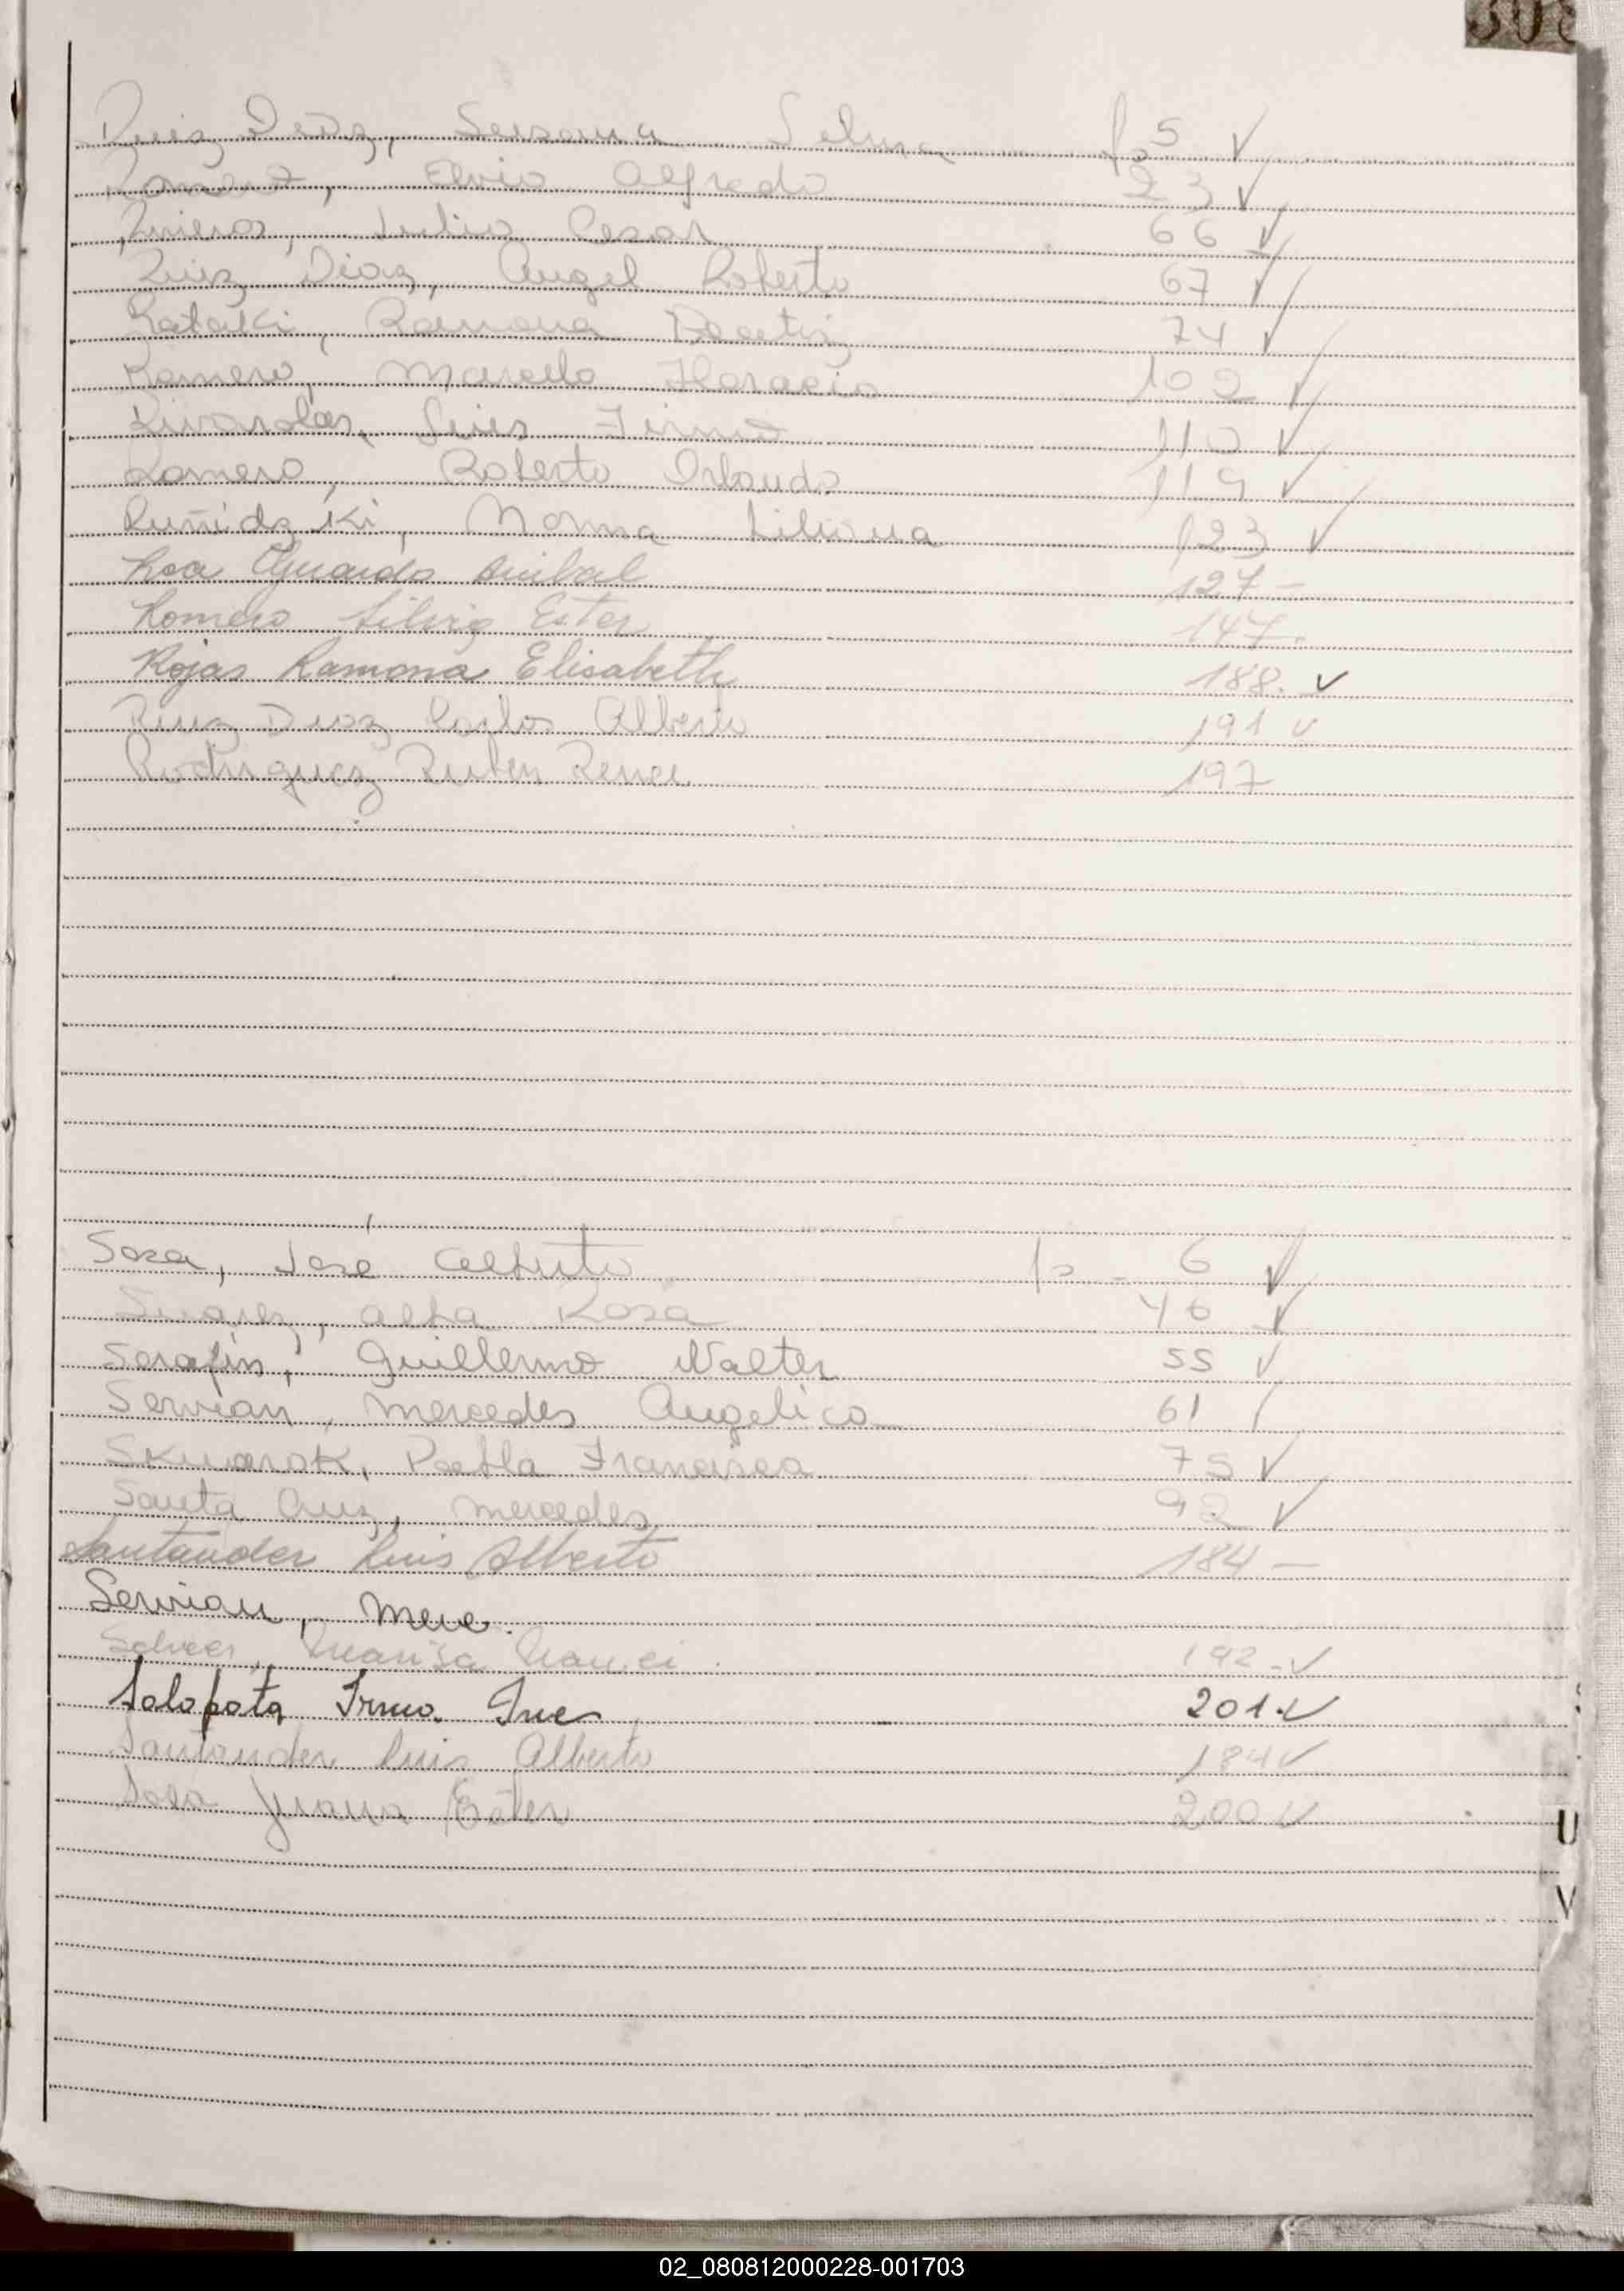 308
Ruiz Diaz, Susana Selma fo 5 ✓
Romero, Elvio Alfredo 23 ✓
Julio Cesar 66 ✓
Ruiz Diaz, Angel Roberto 67 ✓
Rataki, Ramona Beatriz 74 ✓
Romero, Marcelo Horacio 102 ✓
Rivarolas, Luis 110 ✓
Romero, Roberto Orlando 119 ✓
Ruñidzki, Norma Liliana 123 ✓
Roa Anibal 127 -
Romero Silvia Ester 147 -
Rojas Ramona Elisabeth 188. ✓
Ruiz Diaz Carlos Alberto 191 ✓
Rodriguez Ruben Rene 197
Sosa, José Alberto fo - 6 ✓
Suarez, Alba Rosa 46 ✓
Serafin, Guillermo Walter 55 ✓
Servian, Mercedes Angelica 61 /
Skwarok, Pabla Francisca 75 ✓
Santa Cruz, Mercedes 92 ✓
Santander Luis Alberto 184 -
Servian, Merc.
Marisa 192 - ✓
Salopata Irma Ine 201. ✓
Santander Luis Alberto 184 ✓
Sosa Juana Ester 200 ✓
U
V
02_080812000228-001703